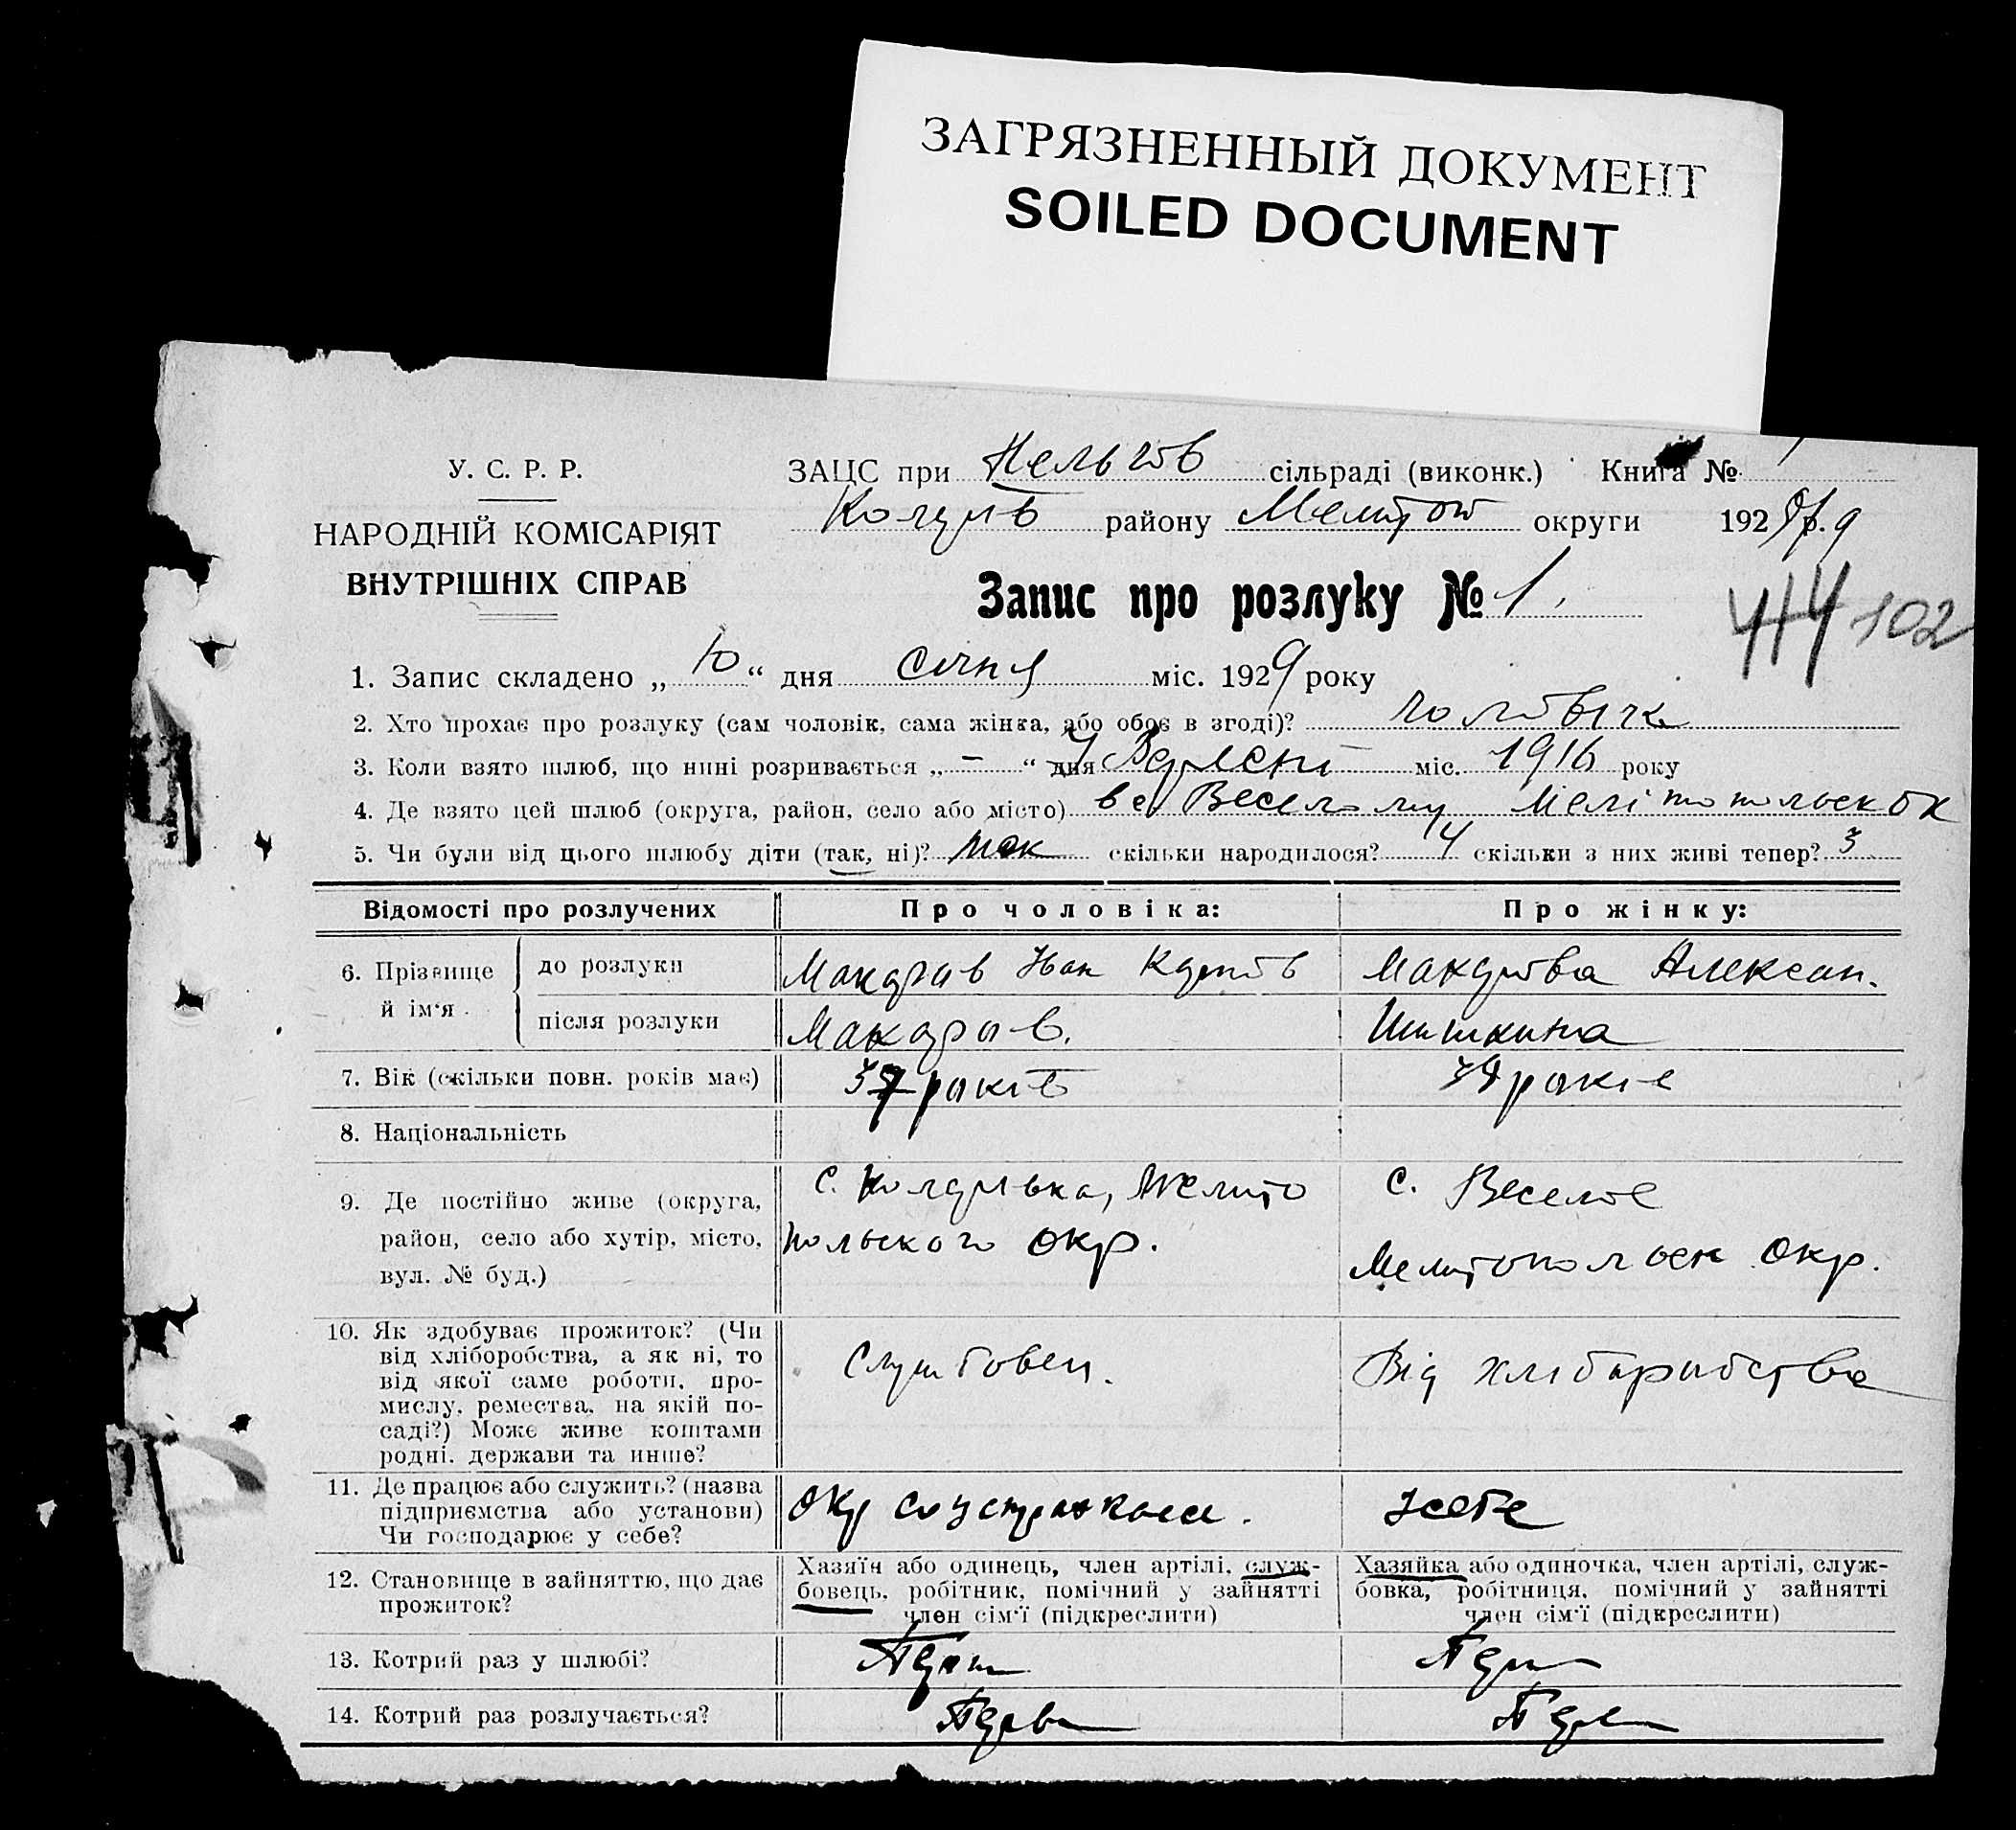 ЗАГРЯЗНЕННЫЙ ДОКУМЕНТ
SOILED DOCUMENT
У. С. Р. Р.
НАРОДНІЙ КОМІСАРІЯТ
ВНУТРІШНІХ СПРАВ
ЗАЦС при сільраді (виконк.) Книга № 1
району Мелітоп округи 1929 р.
Запис про розлуку № 1.
102
1. Запис складено „ 10 “ дня січня міс. 1929 року
2. Хто прохає про розлуку (сам чоловік, сама жінка, або обоє в згоді)? чоловік
3. Коли взято шлюб, що нині розривається „ – “ дня Вересні міс. 1916 року
4. Де взято цей шлюб (округа, район, село або місто) в с. Веселому Мелітопольськ ок
5. Чи були від цього шлюбу діти (так, ні)? так скільки народилося? 4 скільки з них живі тепер? 3
Відомості про розлучених Про чоловіка: Про жінку:
6. Прізвище й ім‘я
до розлуки Іван Алексан.
після розлуки Шишкина
7. Вік (скільки повн. років має) 37 років років
8. Національність
9. Де постійно живе (округа,
район, село або хутір, місто,
вул. № буд.)
с. Мелито
польского окр.
с. Веселое
Мелитопольск окр.
10. Як здобуває прожиток? (Чи
від хліборобства, а як ні, то
від якої саме роботи, про-
мислу, ремества, на якій по-
саді?) Може живе коштами
родні, держави та инше?
Службовец.
Від хліборобства
11. Де працює або служить? (назва
підприємства або установи)
Чи господарює у себе?
Окр соцстрахкаси.
12. Становище в зайняттю, що дає
прожиток?
Хазяїн або одинець, член артілі, служ-
бовець, робітник, помічний у зайнятті
член сім‘ї (підкреслити)
Хазяйка або одиночка, член артілі, служ-
бовка, робітниця, помічний у зайнятті
член сім‘ї (підкреслити)
13. Котрий раз у шлюбі?
14. Котрий раз розлучається?